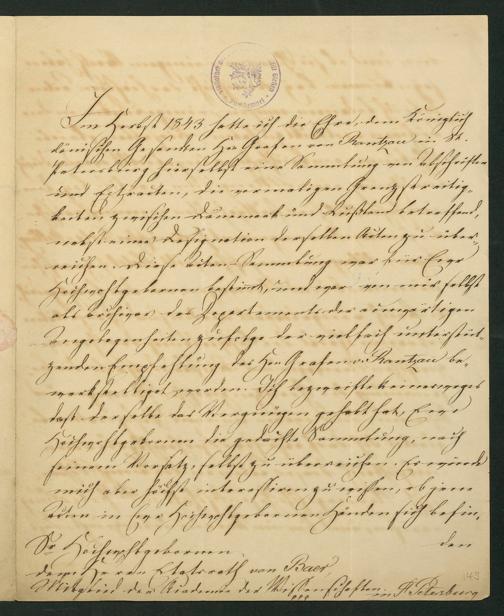 Im Herbst 1843 hatte ich die Ehre, dem Königlich
dänischen Gesandten Hrn Grafen von Rantzau in St.
Petersburg hierselbst eine Sammlung von Abschriften
und Extracten, die vormaligen Grenzstreitig-
keiten zwischen Dänemark und Rußland betreffend,
nebst einer Designation derselben Acten zu über-
reichen. Diese Acten-Sammlung war für Eure
Hochwohlgebornen bestimmt, und war von mir selbst
als Archivar des Departements der auswärtigen
Angelegenheiten zufolge der vielfach unterstüt-
zenden Empfehlung des Hrn Grafen v. Rantzau be-
werkstelligt worden. Ich bezweifle keinesweges
daß derselbe das Vergnügen gehabt hat, Eure
Hochwohlgebornen die gedachte Sammlung, nach
seinem Vorsatz, selbst zu überreichen. Es würde
mich aber höchst interessiren zu wissen, ob jene
Acten in Eurer Hochwohlgebornen Händen sich befin-
den
Sr Hochwohlgebornen
dem Herrn Etatsrath von Baer,
Mitglied der Academie der Wissenschaften in St. Petersburg
143